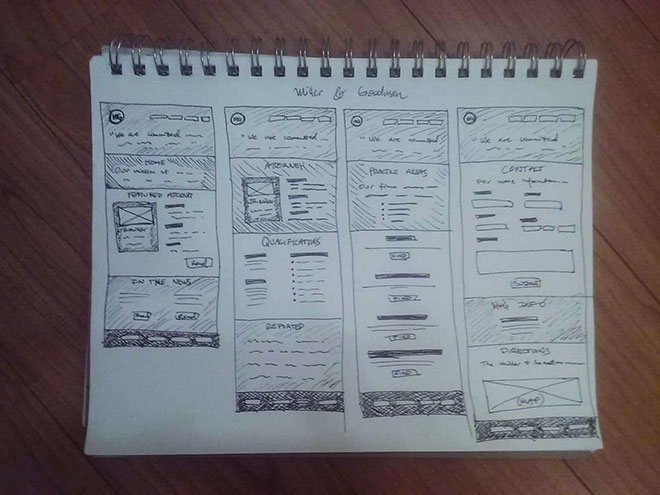 Miller & Goodman
MG
"We are committed
HOME
Our mission
FEATURED ATTORNEY
ATTORNEY
Read
IN THE NEWS
Read Read
MG
"We are committed
ATTORNEY
QUALIFICATIONS
REPORTED
MG
"We are committed
PRACTICE AREAS
Our firm
FIND
FIND
FIND
FIND
MG
"We are committed
CONTACT
For more information
SUBMIT
INFO
DIRECTIONS
The Miller &
MAP